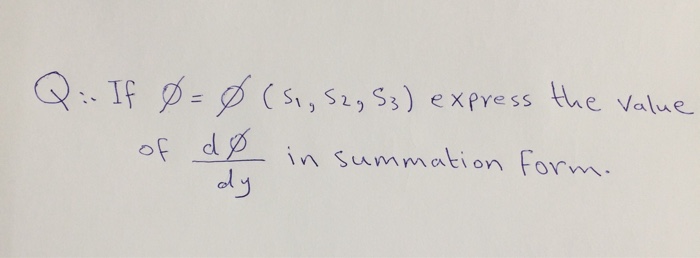 Q:. If Ø = Ø (S₁, S₂, S₃) express the value
of dØ/dy in summation form.